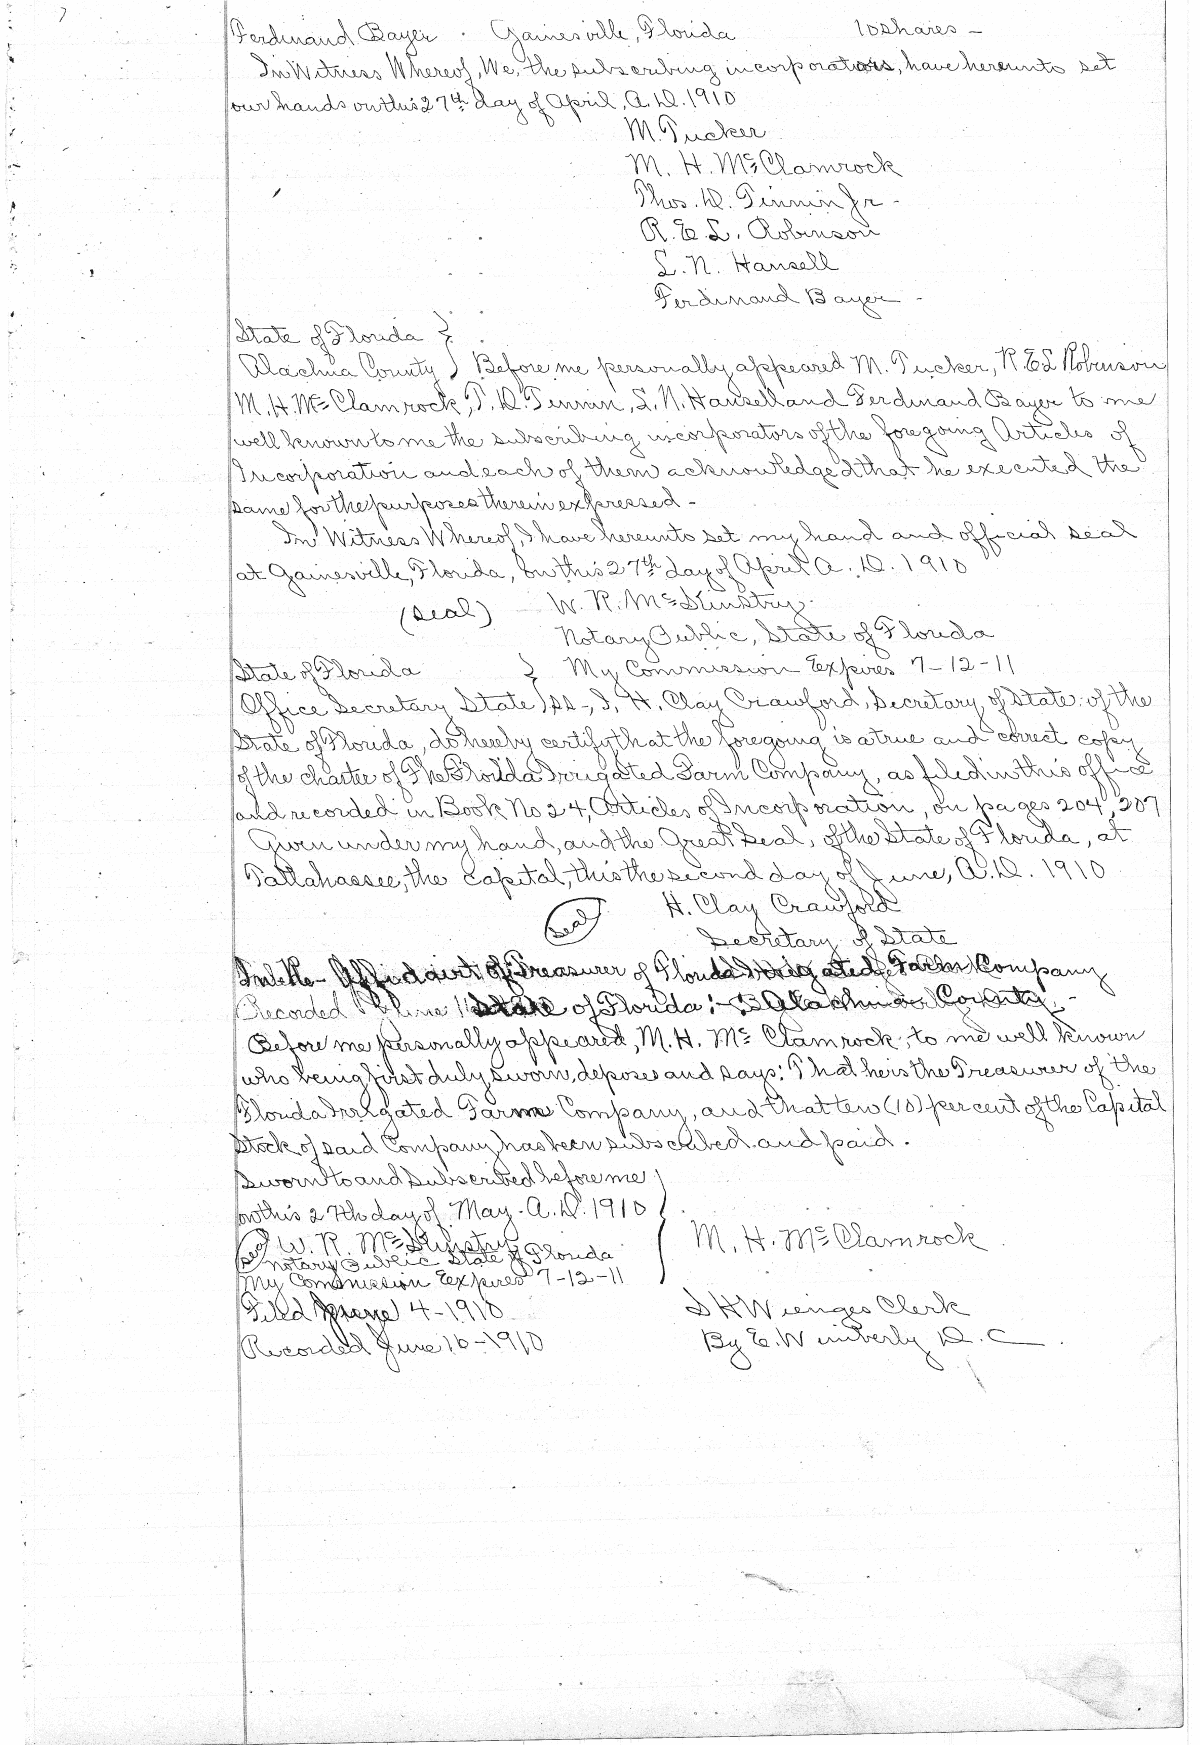 Ferdinand Bayer . Gainesville, Florida 10 shares -
In Witness Whereof, We, the subscribing incorporators, have hereunto set
our hands on this 27th day of April, A.D. 1910
M. Tucker
M. H. McClamrock
Thos. D. Tinnin Jr -
R. E. L. Robinson
L. N. Hansell
Ferdinand Bayer -
State of Florida }
Alachua County } Before me personally appeared M. Tucker, R.E.L Robinson
M. H. McClamrock, T. D. Tinnin, L. N. Hansell and Ferdinand Bayer to me
well known to me the subscribing incorporators of the foregoing Articles of
Incorporation and each of them acknowledged that he executed the
same for the purposes therein expressed -
In Witness Whereof, I have hereunto set my hand and official seal
at Gainesville, Florida, on this 27th day of April A. D. 1910
(seal) W. R. McKinstry
Notary Public, State of Florida
State of Florida } My Commission Expires 7-12-11
Office Secretary State } ss -, I, H. Clay Crawford, Secretary of State of the
State of Florida, do hereby certify that the foregoing is a true and correct copy
of the charter of The Florida Irrigated Farm Company, as filed in this office
and recorded in Book No 24, Articles of Incorporation, on pages 204, 207
Given under my hand, and the Great Seal, of the State of Florida, at
Tallahassee, the capital, this the second day of June, A.D. 1910
H. Clay Crawford
seal
Secretary of State
Affidavit of Treasurer of Florida Irrigated Farm Company
Recorded June State of Florida :- Alachua County, -
Before me personally appeared, M. H. McClamrock, to me well known
who being first duly sworn, deposes and says: That he is the Treasurer of the
Florida Irrigated Farm Company, and that ten (10) per cent of the Capital
Stock of said Company has been subscribed and paid.
Sworn to and subscribed before me }
on this 27th day of May. A.D. 1910
seal W. R. McKinstry M. H. McClamrock
Notary Public State of Florida
My Commission Expires 7-12-11
Filed June 4-1910 S H Wienges Clerk
Recorded June 10-1910 By E. Wimberly D. C